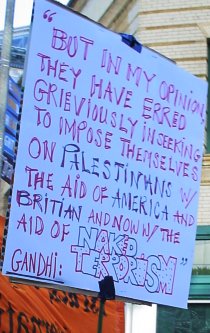 "BUT IN MY OPINION,
THEY HAVE ERRED
GRIEVIOUSLY IN SEEKING
TO IMPOSE THEMSELVES
ON PALESTINIANS W/
THE AID OF AMERICA AND
BRITIAN AND NOW W/ THE
AID OF NAKED
TERRORISM"
GANDHI: